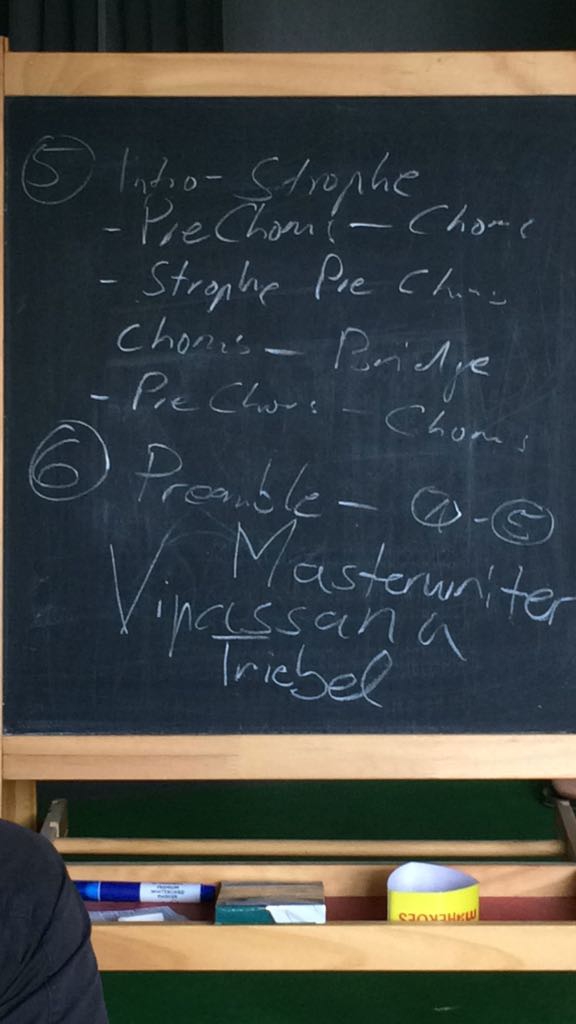 ⑤ Intro - Strophe
- PreChorus - Chorus
- Strophe Pre Chorus
Chorus - Bridge
- Pre Chorus - Chorus
⑥ Preamble - ① - ⑤
Masterwriter
Vipassana
Triebel
PREMIUM
WHITEBOARD
MARKER